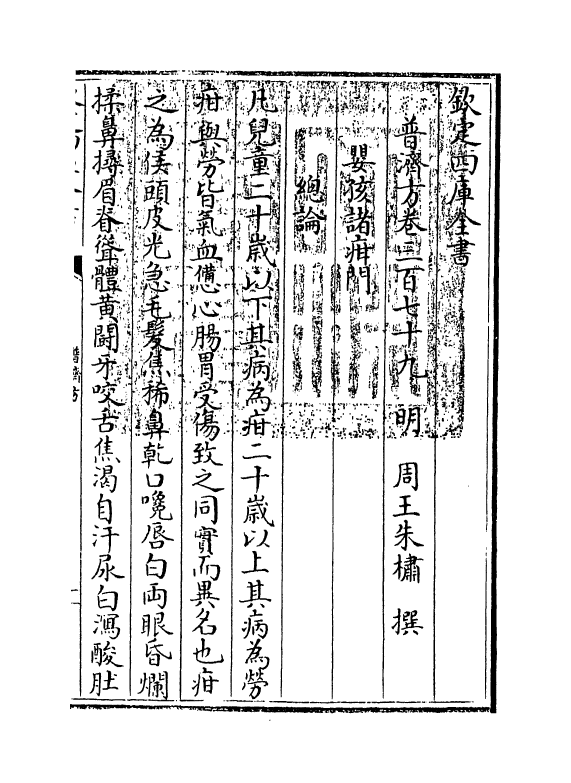 欽定四庫全書
普濟方卷三百七十九　明　周王朱橚　撰
嬰孩諸疳門
總論
凡兒童二十歳以下其病為疳二十歳以上其病為勞
疳與勞皆氣血憊心腸胃受傷致之同實而異名也疳
之為候頭皮光急毛髮焦稀鼻乾口嚵唇白兩眼昏爛
揉鼻撏眉脊聳體黄鬭牙咬舌焦渴自汗尿白瀉酸肚
普濟方